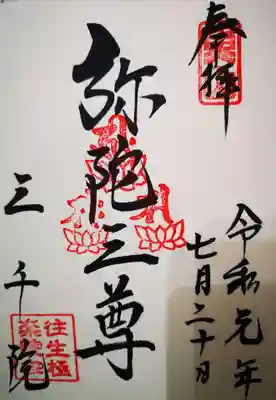 奉拝
令和元年
七月二十日
弥陀三尊
三千院
往生極
楽院